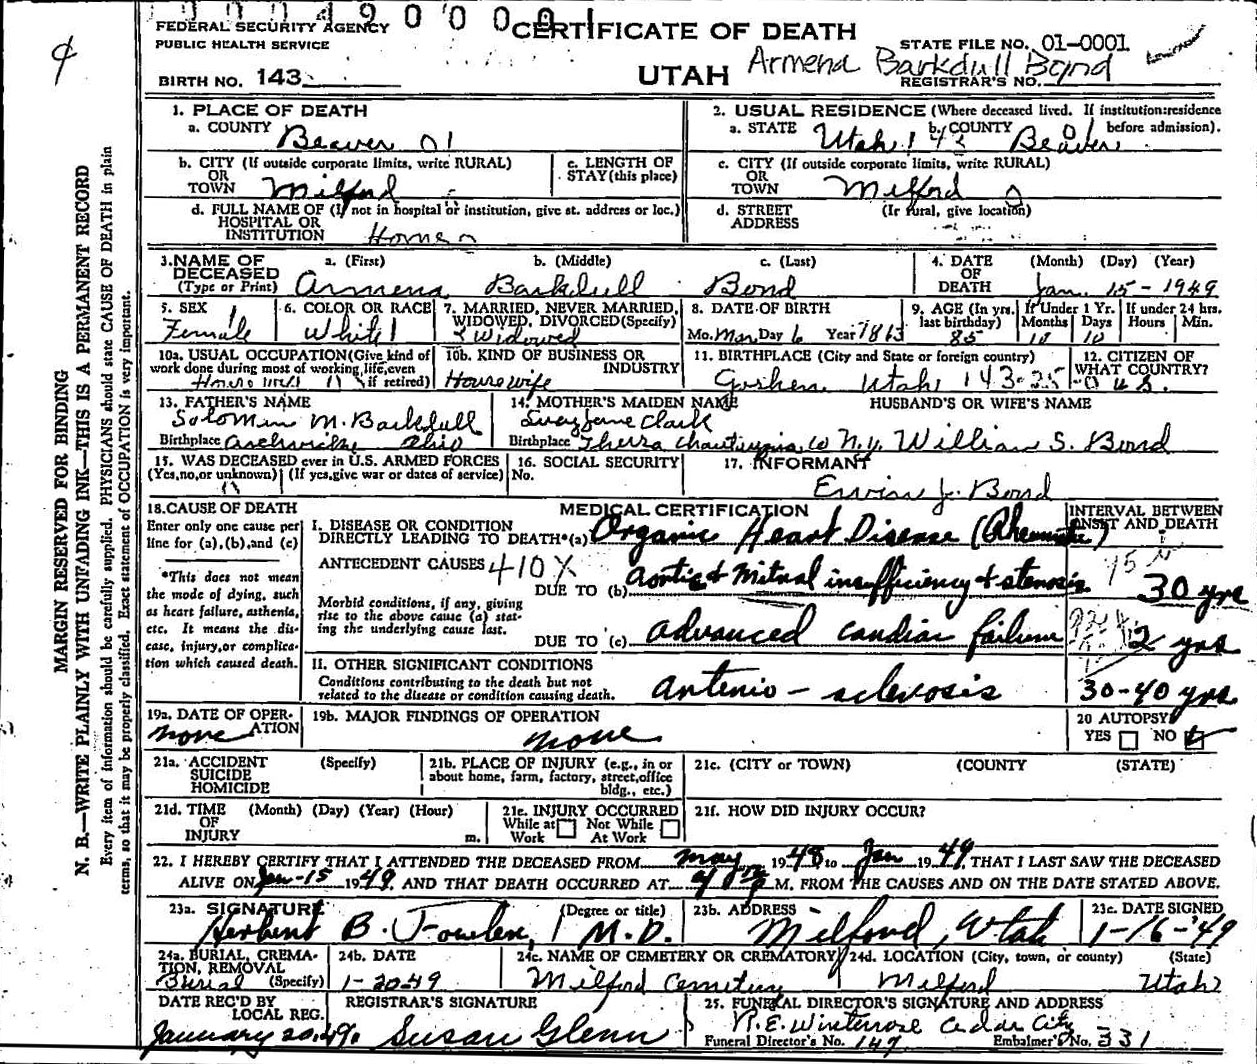 FEDERAL SECURITY AGENCY
PUBLIC HEALTH SERVICE
BIRTH NO. 143
CERTIFICATE OF DEATH
UTAH
STATE FILE NO. 01-0001
Armena Barkdull Bond
REGISTRAR'S NO.
MARGIN RESERVED FOR BINDING
N. B.—WRITE PLAINLY WITH UNFADING INK—THIS IS A PERMANENT RECORD
Every item of information should be carefully supplied. PHYSICIANS should state CAUSE OF DEATH in plain
terms, so that it may be properly classified. Exact statement of OCCUPATION is very important.
1. PLACE OF DEATH
a. COUNTY Beaver 01
b. CITY (If outside corporate limits, write RURAL)
OR
TOWN Milford
c. LENGTH OF
STAY (this place)
d. FULL NAME OF (If not in hospital or institution, give st. address or loc.)
HOSPITAL OR
INSTITUTION Home
2. USUAL RESIDENCE (Where deceased lived. If institution: residence
before admission).
a. STATE Utah 143 b. COUNTY Beaver 01
c. CITY (If outside corporate limits, write RURAL)
OR
TOWN Milford 0
d. STREET (If rural, give location)
ADDRESS
3. NAME OF
DECEASED
(Type or Print)
a. (First) b. (Middle) c. (Last)
Armena Barkdull Bond
4. DATE
OF
DEATH
(Month) (Day) (Year)
Jan. 15 - 1949
5. SEX
Female
6. COLOR OR RACE
White 1
7. MARRIED, NEVER MARRIED,
WIDOWED, DIVORCED (Specify)
Widowed
8. DATE OF BIRTH
Mo. Mar Day 6 Year 1863
9. AGE (In yrs.
last birthday)
85
If Under 1 Yr.
Months Days
10 10
If under 24 hrs.
Hours Min.
10a. USUAL OCCUPATION (Give kind of
work done during most of working life, even
if retired)
Housewife
10b. KIND OF BUSINESS OR
INDUSTRY
Housewife
11. BIRTHPLACE (City and State or foreign country)
Goshen Utah 143-25
12. CITIZEN OF
WHAT COUNTRY?
U.S.
13. FATHER'S NAME
Solomon M. Barkdull
Birthplace Ohio
14. MOTHER'S MAIDEN NAME
Lucy Jane Clark
Birthplace Co N.Y.
HUSBAND'S OR WIFE'S NAME
William S. Bond
15. WAS DECEASED ever in U.S. ARMED FORCES
(Yes, no, or unknown) (If yes, give war or dates of service)
16. SOCIAL SECURITY
No.
17. INFORMANT
Ervin J. Bond
18. CAUSE OF DEATH
Enter only one cause per
line for (a), (b), and (c)
*This does not mean
the mode of dying, such
as heart failure, asthenia,
etc. It means the dis-
ease, injury, or complica-
tion which caused death.
MEDICAL CERTIFICATION
INTERVAL BETWEEN
ONSET AND DEATH
I. DISEASE OR CONDITION
DIRECTLY LEADING TO DEATH*(a) Organic Heart Disease (Rheumatic)
ANTECEDENT CAUSES 410X
DUE TO (b) Aortic & Mitral insufficiency & stenosis 30 yrs
Morbid conditions, if any, giving
rise to the above cause (a) stat-
ing the underlying cause last.
DUE TO (c) advanced cardiac failure 2 yrs
II. OTHER SIGNIFICANT CONDITIONS
Conditions contributing to the death but not
related to the disease or condition causing death.
Arterio-sclerosis 30-40 yrs
19a. DATE OF OPER-
ATION
none
19b. MAJOR FINDINGS OF OPERATION
none
20 AUTOPSY
YES NO
21a. ACCIDENT (Specify)
SUICIDE
HOMICIDE
21b. PLACE OF INJURY (e.g., in or
about home, farm, factory, street, office
bldg., etc.)
21c. (CITY OR TOWN) (COUNTY) (STATE)
21d. TIME (Month) (Day) (Year) (Hour)
OF
INJURY m.
21e. INJURY OCCURRED
While at Not While
Work At Work
21f. HOW DID INJURY OCCUR?
22. I HEREBY CERTIFY THAT I ATTENDED THE DECEASED FROM May 1948 to Jan 1949 THAT I LAST SAW THE DECEASED
ALIVE ON Jan-15 1949 AND THAT DEATH OCCURRED AT M. FROM THE CAUSES AND ON THE DATE STATED ABOVE.
23a. SIGNATURE (Degree or title)
Herbert B. Fowler, M.D.
23b. ADDRESS
Milford, Utah
23c. DATE SIGNED
1-16-'49
24a. BURIAL, CREMA-
TION, REMOVAL
(Specify)
Burial
24b. DATE
1-20-49
24c. NAME OF CEMETERY OR CREMATORY
Milford Cemetery
24d. LOCATION (City, town, or county) (State)
Milford Utah
DATE REC'D BY
LOCAL REG.
January 20, 49.
REGISTRAR'S SIGNATURE
Susan Glenn
25. FUNERAL DIRECTOR'S SIGNATURE AND ADDRESS
R.E. Winterrose Cedar City
Funeral Director's No. 147 Embalmer's No. 331